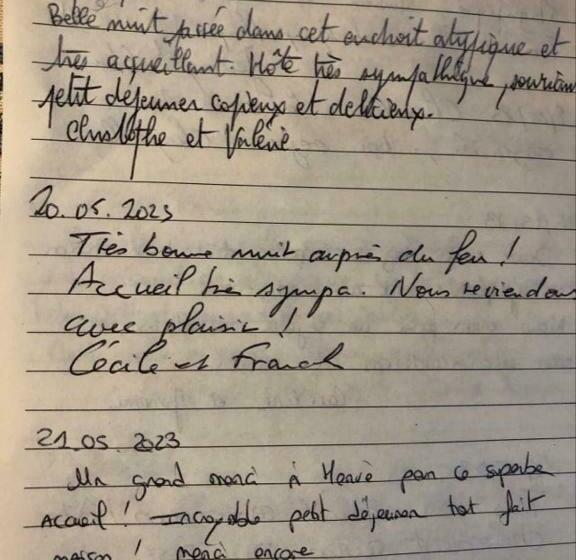 Belle nuit passée dans cet endroit atypique et
très accueillant. Hôte très sympathique, souriant
petit déjeuner copieux et délicieux.
Christophe et Valérie.
20.05.2023
Très bonne nuit auprès du feu !
Accueil très sympa. Nous reviendrons
avec plaisir !
Cécile et Franck
21.05.2023
Un grand merci à Hervé pour ce superbe
Accueil ! Incroyable petit déjeuner tout fait
maison ! merci encore